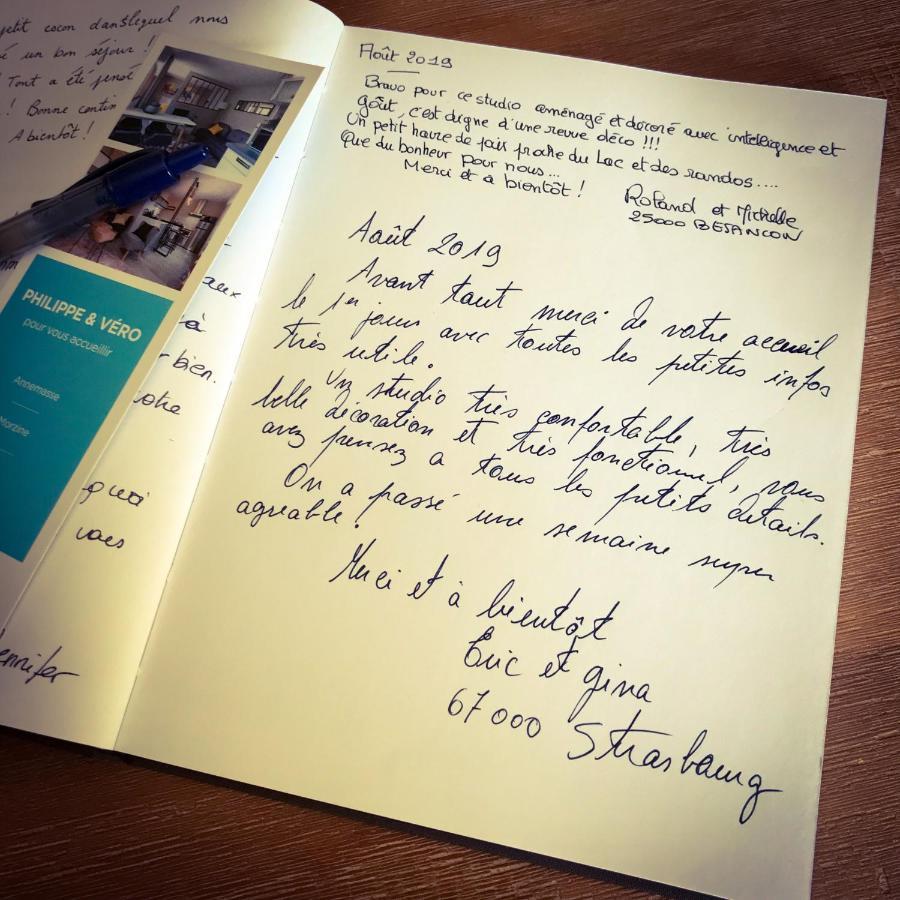 petit cocon dans lequel nous
un bon séjour !
Tout a été pensé
! Bonne contin
A bientôt !
PHILIPPE & VÉRO
pour vous accueillir
Annemasse
Morzine
aux
à
bien.
votre
quoi
vous
ennifer
Août 2019
Bravo pour ce studio aménagé et décoré avec intelligence et
goût, c'est digne d'une revue déco !!!
Un petit havre de paix proche du Lac et des randos....
Que du bonheur pour nous...
Merci et à bientôt !
Roland et Michelle
25000 BESANCON
Août 2019
Avant tout merci de votre accueil
le 1er jour avec toutes les petites infos
très utile.
Un studio très confortable, très
belle décoration et très fonctionnel, vous
avez pensez a tous les petits détails.
On a passé une semaine super
agreable.
Merci et à bientôt
Eric et gina
67000 Strasbourg